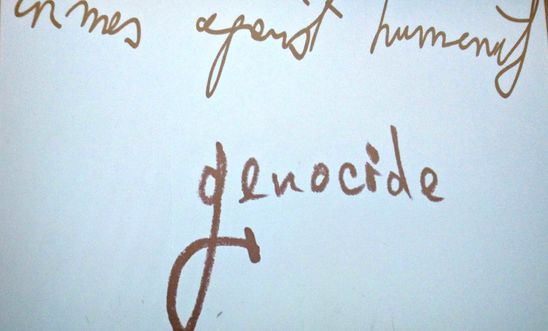 crimes against humanity
genocide